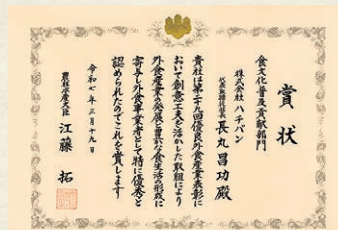 賞状
食文化普及貢献部門
株式会社ハチバン
代表取締役社長 長丸昌功殿
貴社は第三十九回優良外食産業表彰に
おいて創意工夫を活かした取組により
外食産業の発展と豊かな食生活の形成に
寄与し外食事業者として特に優秀と
認められたのでこれを賞します
令和七年三月十九日
農林水産大臣 江藤 拓